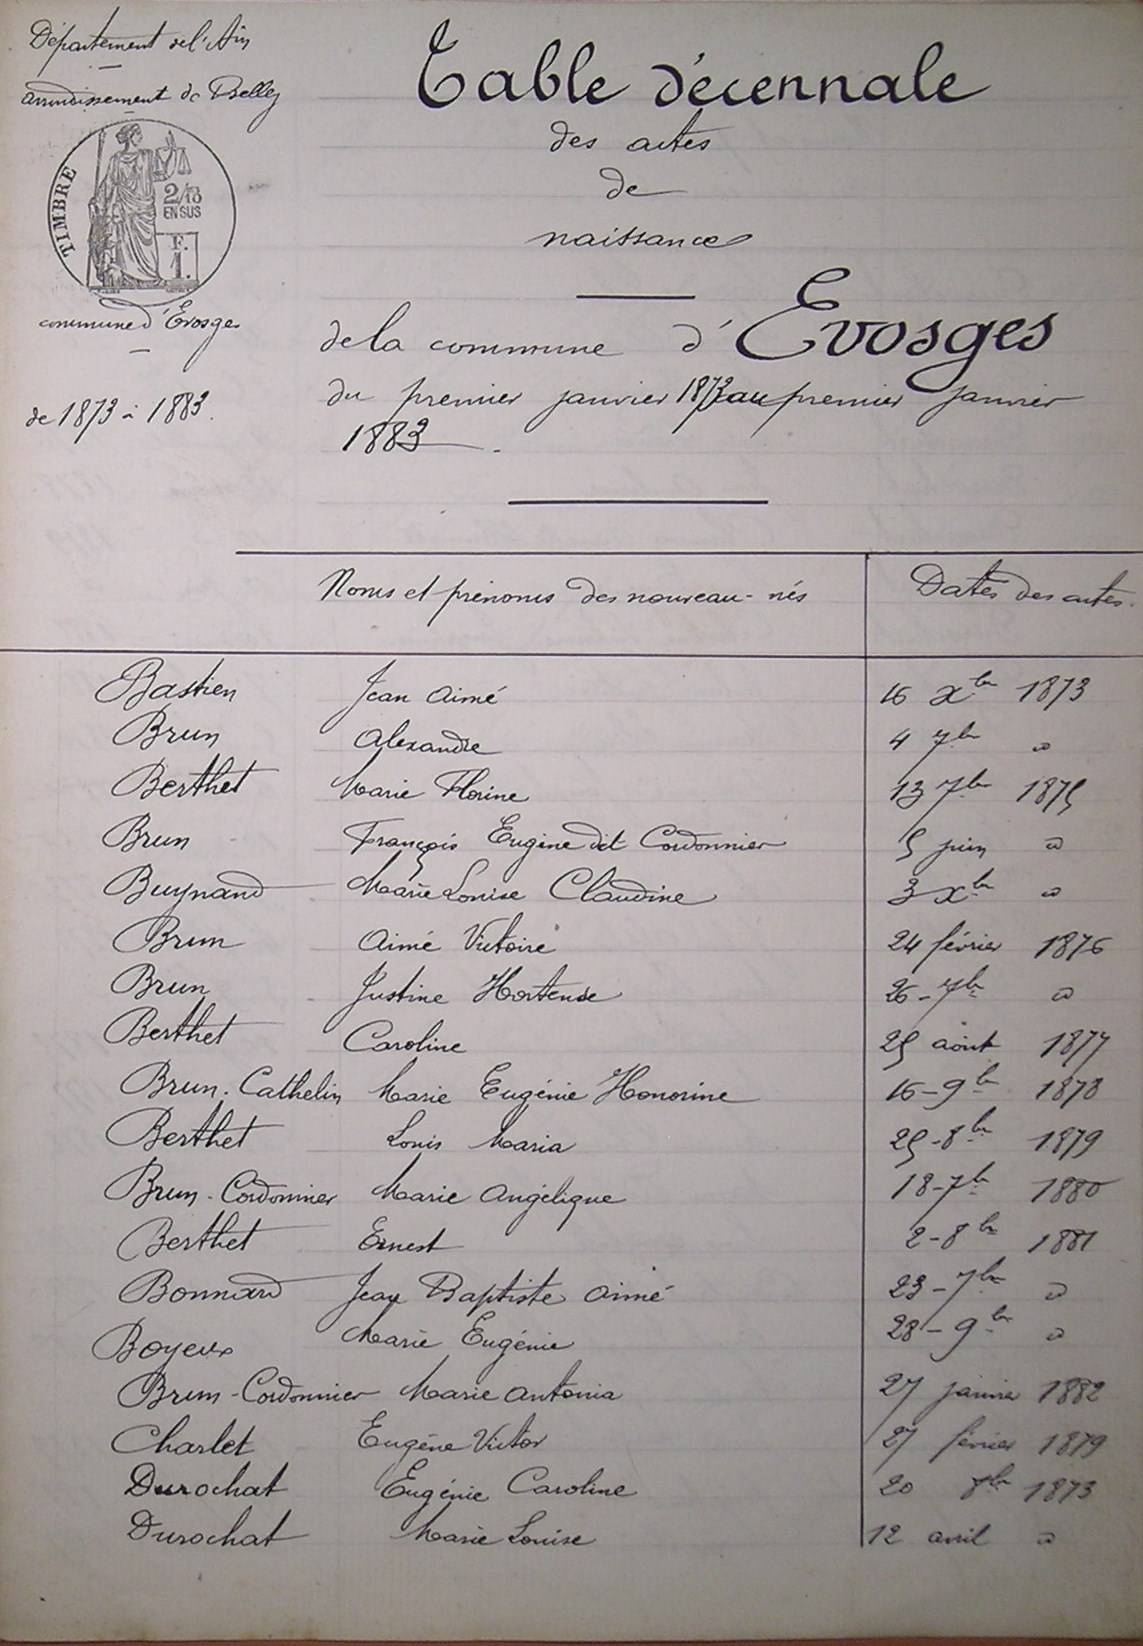 Département de l'Ain
arrondissement de Belley
TIMBRE
2/10
EN SUS
F.
1.
commune d'Evosges
de 1873 à 1883.
Table décennale
des actes
de
naissance
de la commune d'Evosges
du premier janvier 1873 au premier janvier
1883.
Noms et prénoms des nouveau-nés Dates des actes.
Bastien Jean Aimé 16 Xbre 1873
Brun Alexandre 4 7bre "
Berthet Marie Florine 13 7bre 1875
Brun François Eugène dit Cordonnier 5 juin "
Buynand Marie Louise Claudine 3 Xbre "
Brun Aimé Victoire 24 février 1876
Brun Justine Hortense 26-7bre "
Berthet Caroline 25 août 1877
Brun-Cathelin Marie Eugénie Honorine 16-9bre 1878
Berthet Louis Maria 25-8bre 1879
Brun-Cordonnier Marie Angélique 18-7bre 1880
Berthet Ernest 2-8bre 1881
Bonnard Jean Baptiste Aimé 23-7bre "
Boyeux Marie Eugénie 28-9bre "
Brun-Cordonnier Marie Antonia 27 janvier 1882
Charlet Eugène Victor 27 février 1879
Durochat Eugénie Caroline 20 1873
Durochat Marie Louise 12 avril "